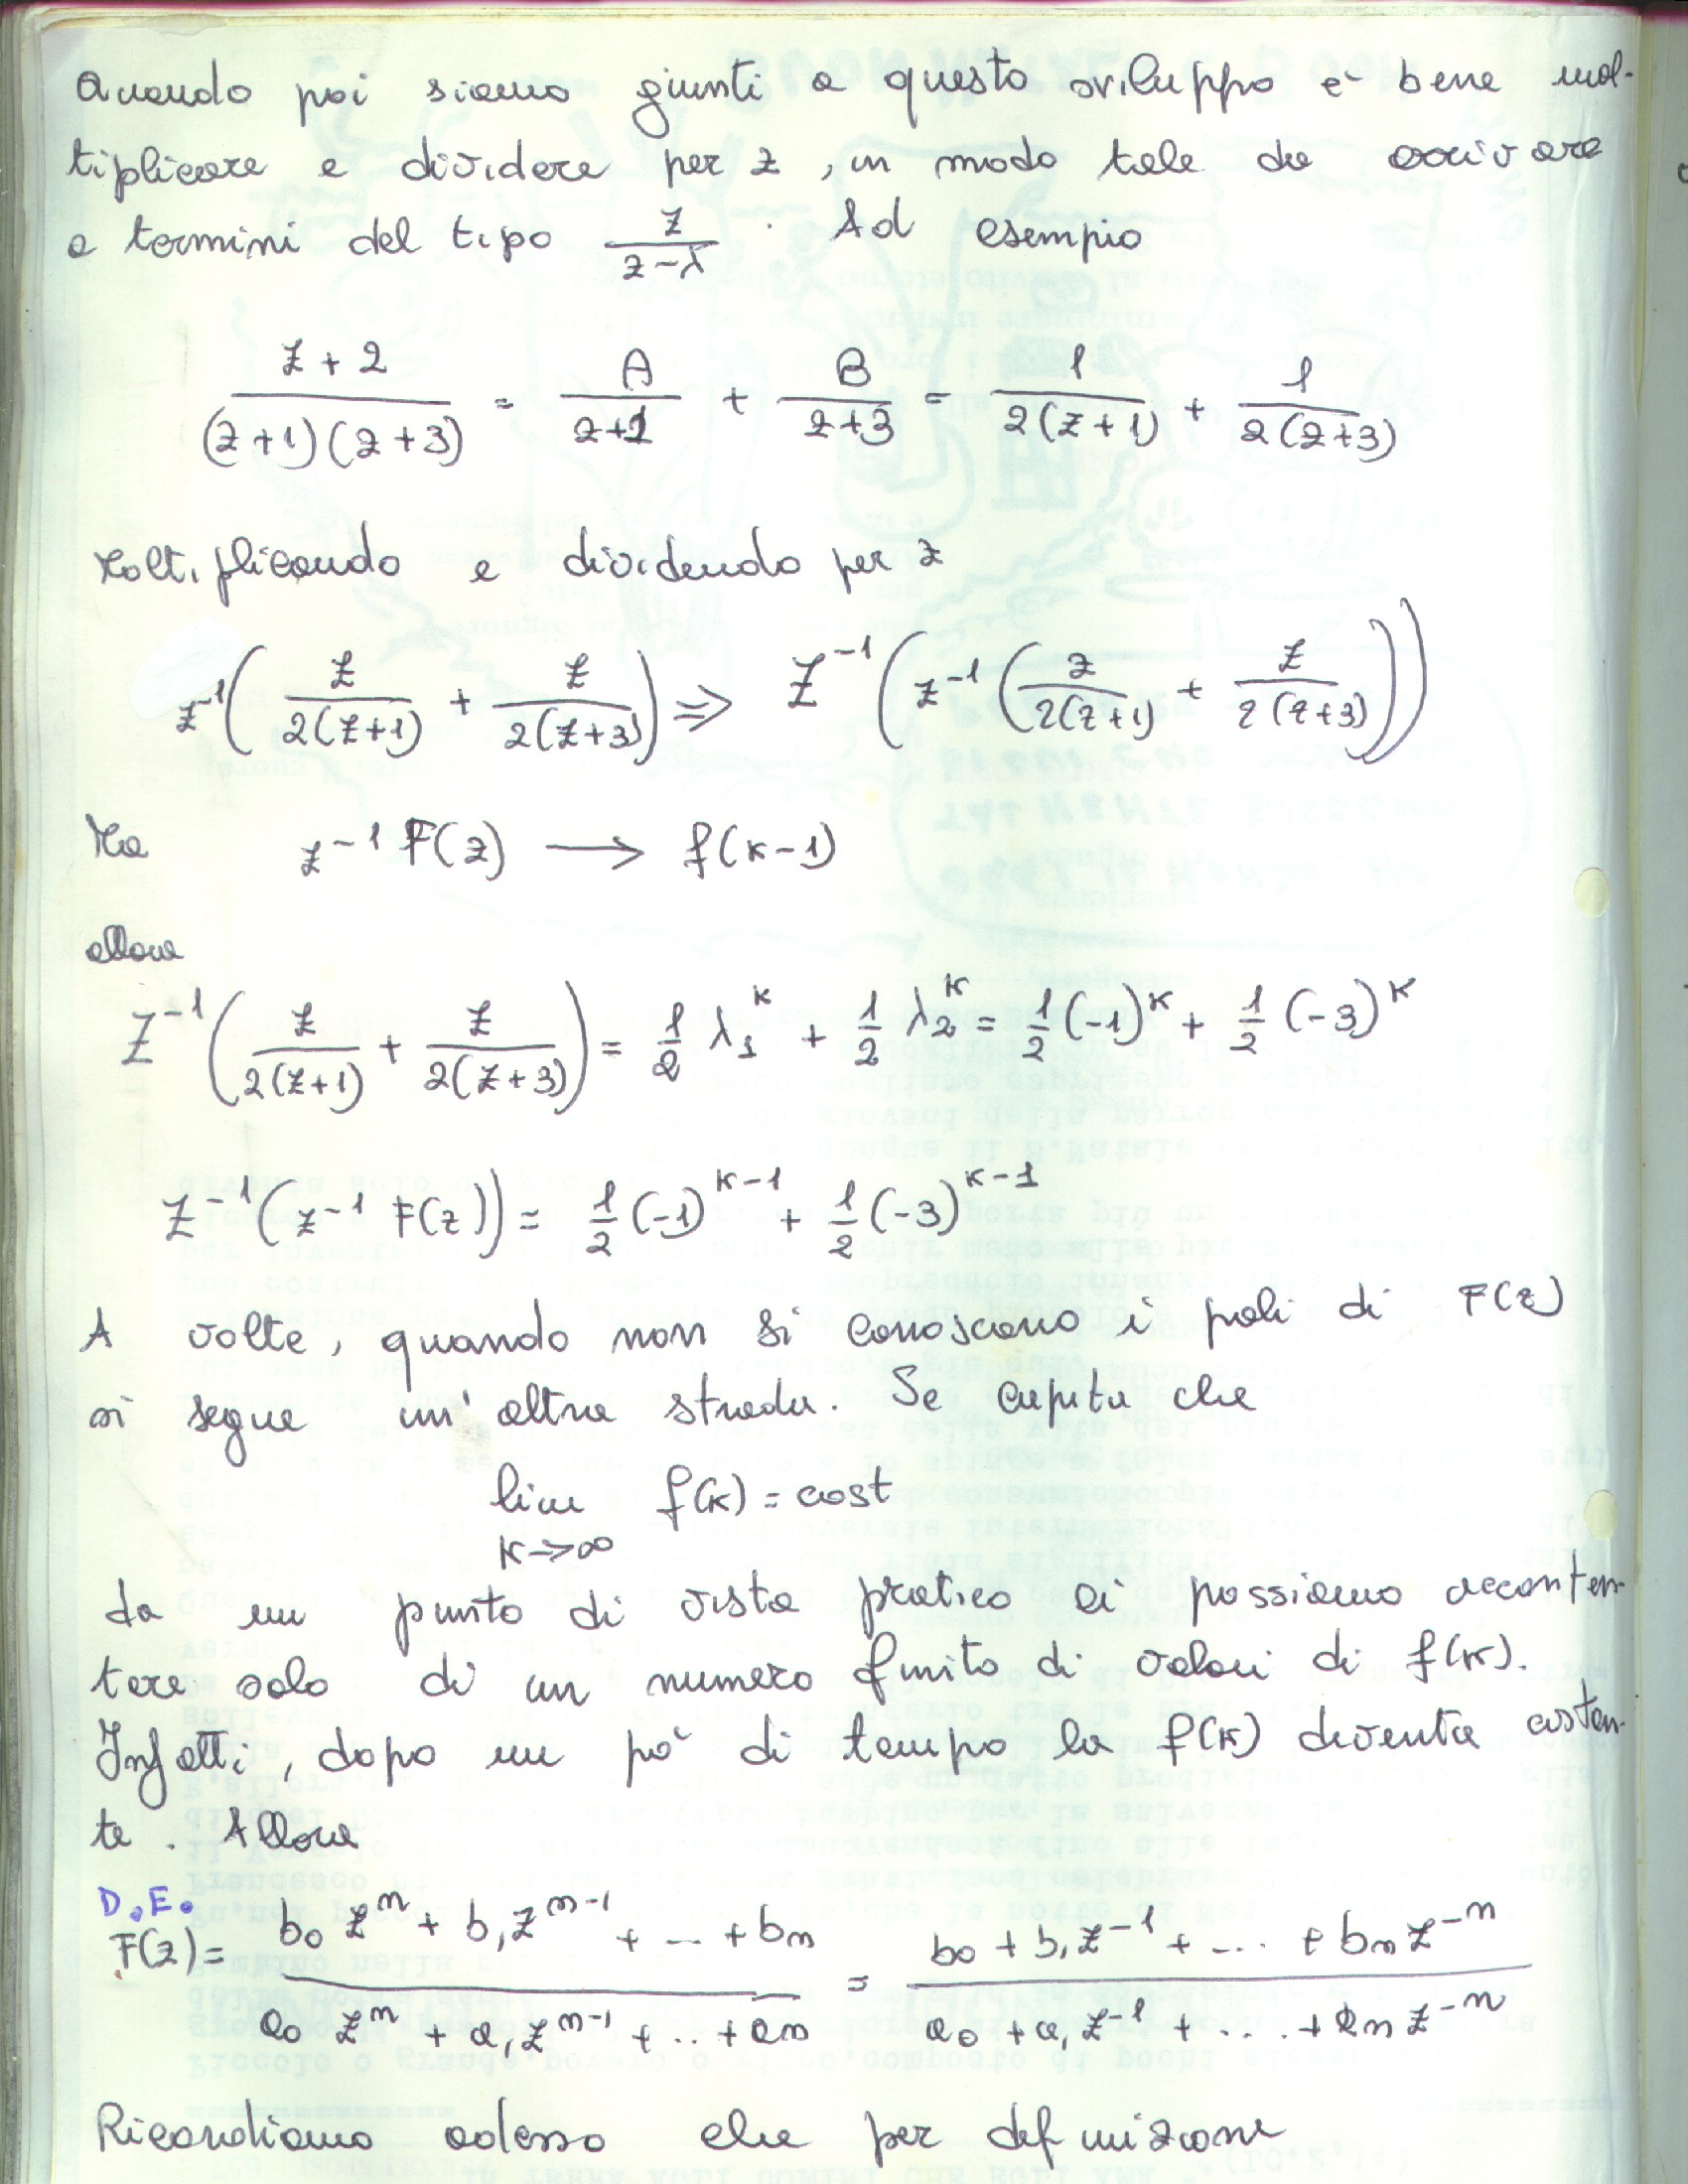 Quando poi siamo giunti a questo sviluppo è bene mol-
tiplicare e dividere per z, in modo tale da arrivare
a termini del tipo z/(z-λ). Ad esempio
(z+2)/((z+1)(z+3)) = A/(z+1) + B/(z+3) = 1/(2(z+1)) + 1/(2(z+3))
Moltiplicando e dividendo per z
z⁻¹( z/(2(z+1)) + z/(2(z+3)) ) ⇒ Z⁻¹( z⁻¹( z/(2(z+1)) + z/(2(z+3)) ))
Ma z⁻¹ F(z) → f(k-1)
allora
Z⁻¹( z/(2(z+1)) + z/(2(z+3)) ) = 1/2 λ₁ᵏ + 1/2 λ₂ᵏ = 1/2 (-1)ᵏ + 1/2 (-3)ᵏ
Z⁻¹( z⁻¹ F(z)) = 1/2 (-1)ᵏ⁻¹ + 1/2 (-3)ᵏ⁻¹
A volte, quando non si conoscono i poli di F(z)
si segue un'altra strada. Se capita che
lim f(k) = cost
k→∞
da un punto di vista pratico ci possiamo acconten-
tare solo di un numero finito di valori di f(k).
Infatti, dopo un pò di tempo la f(k) diventa costan-
te. Allora
D.E.
F(z) = (b₀ zⁿ + b₁ zⁿ⁻¹ + ... + bₙ)/(a₀ zⁿ + a₁ zⁿ⁻¹ + .. + aₙ) = (b₀ + b₁ z⁻¹ + .... + bₙ z⁻ⁿ)/(a₀ + a₁ z⁻¹ + .... + aₙ z⁻ⁿ)
Ricordiamo adesso che per definizione